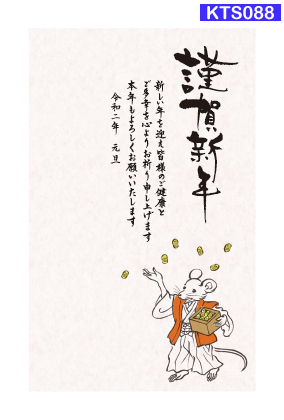 KTS088
謹賀新年
新しい年を迎え皆様のご健康と
ご多幸を心よりお祈り申し上げます
本年もよろしくお願いいたします
令和二年 元旦